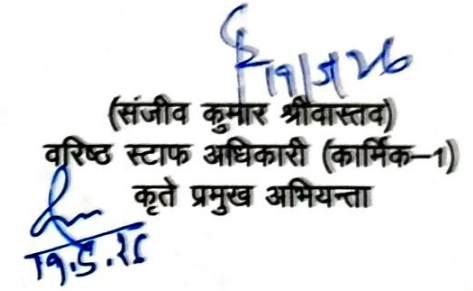 19/5/26
(संजीव कुमार श्रीवास्तव)
वरिष्ठ स्टाफ अधिकारी (कार्मिक–1)
कृते प्रमुख अभियन्ता
19.5.26